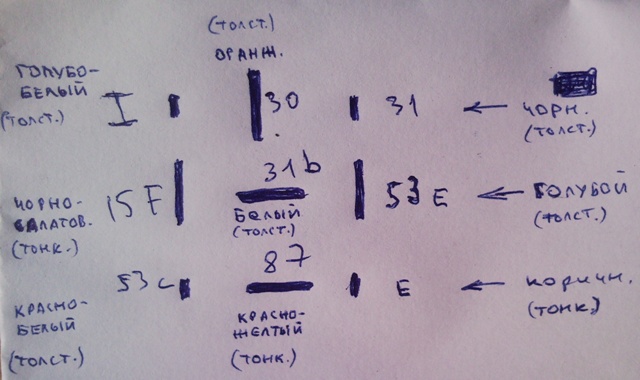 (ТОЛСТ.)
ОРАНЖ.
ГОЛУБО-
БЕЛЫЙ
(ТОЛСТ.)
I
30
31
ЧОРН.
(ТОЛСТ.)
ЧОРНО-
САЛАТОВ.
(ТОНК.)
15F
31b
БЕЛЫЙ
(ТОЛСТ.)
53 E
ГОЛУБОЙ
(ТОЛСТ.)
КРАСНО-
БЕЛЫЙ
(ТОЛСТ.)
53 c
87
КРАСНО-
ЖЕЛТЫЙ
(ТОНК.)
E
КОРИЧН.
(ТОНК.)